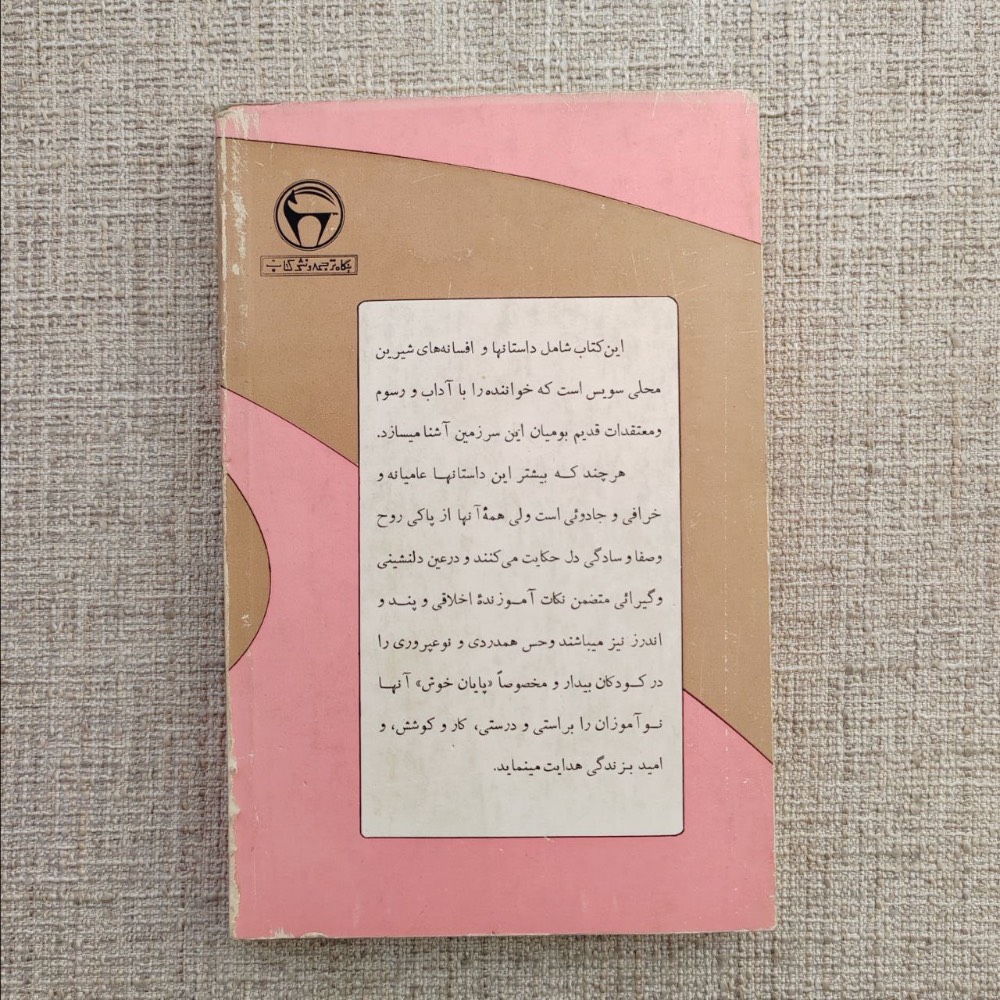 بنگاه ترجمه و نشر کتاب
این کتاب شامل داستانها و افسانه‌های شیرین
محلی سویس است که خواننده را با آداب و رسوم
ومعتقدات قدیم بومیان این سرزمین آشنا میسازد.
هر چند که بیشتر این داستانها عامیانه و
خرافی و جادوئی است ولی همهٔ آنها از پاکی روح
وصفا و سادگی دل حکایت می‌کنند و درعین دلنشینی
وگیرائی متضمن نکات آموزندهٔ اخلاقی و پند و
اندرز نیز میباشند وحس همدردی و نوعپروری را
در کودکان بیدار و مخصوصاً «پایان خوش» آنها
نوآموزان را براستی و درستی، کار و کوشش، و
امید بزندگی هدایت مینماید.